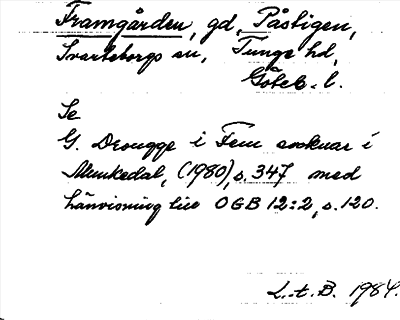 Framgården, gd, Påstigen,
Svarteborgs sn, Tunge hd,
Göteb. l.
Se
G. Drougge i Fem socknar i
Munkedal, (1980), s. 347 med
hänvisning till OGB 12:2, s. 120.
L.t.B. 1984.